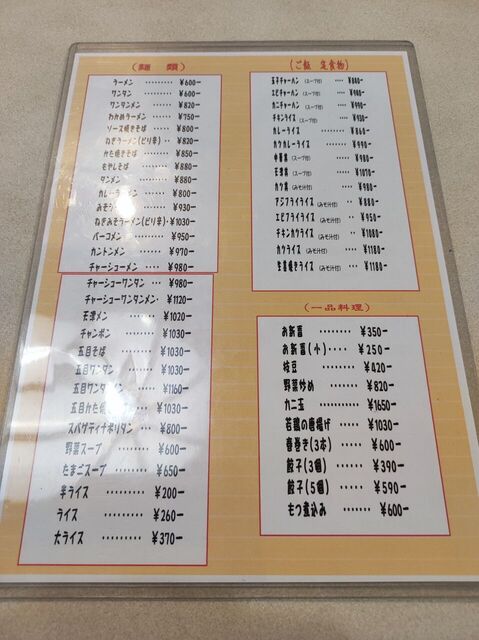 (麺 類)
ラーメン ········ ¥600−
ワンタン ········ ¥600−
ワンタンメン ····· ¥820−
わかめラーメン ···· ¥750−
ソース焼きそば ···· ¥800−
ねぎラーメン(ピリ辛) ·· ¥820−
かた焼きそば ····· ¥880−
もやしそば ······ ¥880−
タンメン ········ ¥880−
カレーラーメン ···· ¥800−
みそラ ¥930−
ねぎみそラーメン(ピリ辛) ·· ¥1030−
パーコメン ······ ¥950−
カントンメン ····· ¥970−
チャーシューメン ···· ¥980−
チャーシューワンタン ···· ¥980−
チャーシューワンタンメン ·· ¥1120−
天津メン ······ ¥1020−
チャンポン ······ ¥1030−
五目そば ······ ¥1030−
五目ワンタン ····· ¥1030−
五目ワンタンメン ···· ¥1160−
五目かた焼 ···· ¥1030−
スパゲティナポリタン ···· ¥800−
野菜スープ ······ ¥600−
たまごスープ ····· ¥650−
半ライス ········ ¥200−
ライス ········· ¥260−
大ライス ········· ¥370−
(ご飯 定食物)
玉子チャーハン (スープ付) ···· ¥880−
エビチャーハン (スープ付) ···· ¥980−
カニチャーハン (スープ付) ···· ¥980−
チキンライス (スープ付) ···· ¥930−
カレーライス ······ ¥860−
カツカレーライス ····· ¥990−
中華丼 (スープ付) ······ ¥980−
天津丼 (スープ付) ······ ¥1070−
カツ丼 (みそ汁付) ······ ¥980−
アジフライライス (みそ汁付) ···· ¥880−
エビフライライス (みそ汁付) ··· ¥950−
チキンカツライス (みそ汁付) ··· ¥1080−
カツライス (みそ汁付) ···· ¥1180−
生姜焼きライス (みそ汁付) ··· ¥1180−
(一品料理)
お新香 ········ ¥350−
お新香(小) ···· ¥250−
枝豆 ········ ¥420−
野菜炒め ······ ¥820−
カニ玉 ······ ¥1650−
若鶏の唐揚げ ···· ¥1030−
春巻き(3本) ···· ¥600−
餃子(3個) ····· ¥390−
餃子(5個) ····· ¥590−
もつ煮込み ······ ¥600−